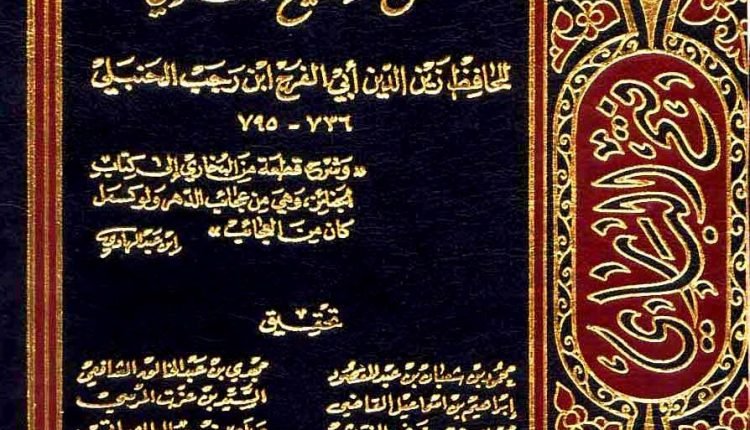 للحافظ زين الدين أبي الفرج ابن رجب الحنبلي
٧٣٦ - ٧٩٥
« وشرح قطعة من البخاري إلى كتاب
الجنائز، وهي من عجائب الدهر ولو كمل
كان من العجائب »
ابن عبد الهادي
تحقيق
محمود بن شعبان بن عبد المقصود
مجدي بن عبد الخالق الشافعي
إبراهيم بن اسماعيل القاضي
السيد بن عزت المرسي
فتح الباري